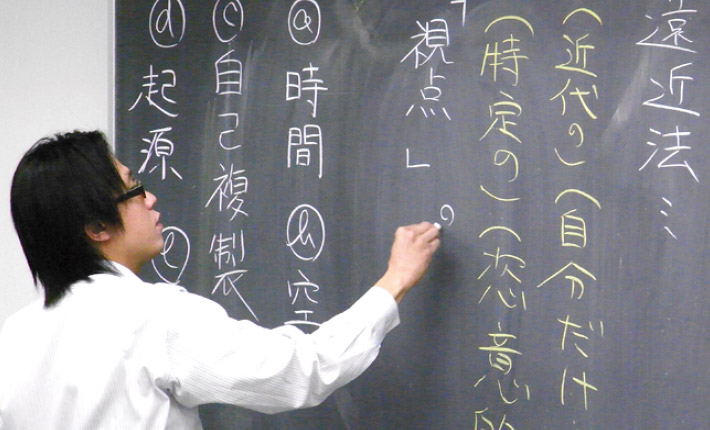 遠近法…
(近代の)(自分だけ
(時定の)(恣意的
「視点」の
ⓐ時間 ⓗ空
ⓒ自己複製
ⓓ起源 ⓔ